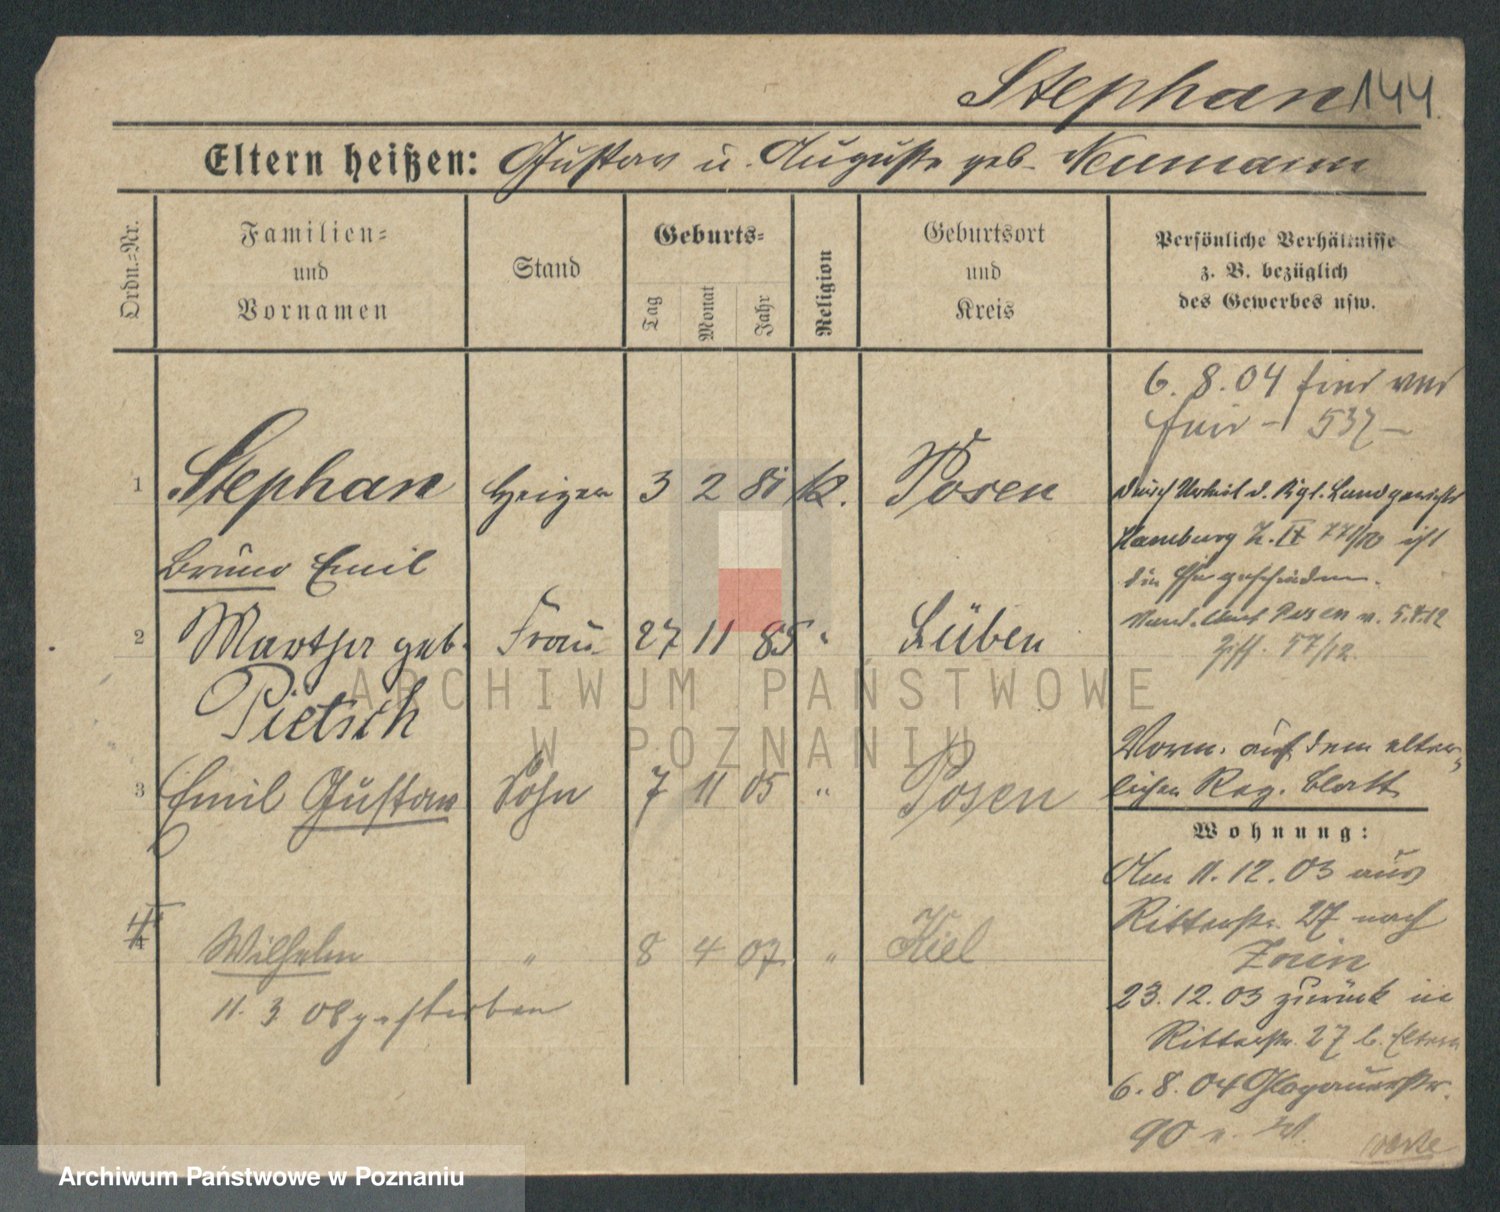 Stephan 144.
Eltern heißen: Gustav u. Auguste geb. Neumann
Ordn.-Nr.
Familien-
und
Vornamen
Stand
Geburts-
Tag
Monat
Jahr
Religion
Geburtsort
und
Kreis
Persönliche Verhältnisse
z. B. bezüglich
des Gewerbes usw.
6. 8. 04
537
1 Stephan Heizer 3 2 81 K. Posen
Bruno Emil
durch Urteil d. Kgl. Landgerichts
Hamburg Z. IV ist
die Ehe geschieden.
Posen v. 5.7.12
77/12.
2 Martha geb. Frau 27 11 85 " Lüben
Pietsch
3 Emil Gustav Sohn 7 11 05 " Posen
Vorm. auf dem elter-
lichen Reg. Blatt
Wohnung:
Am 11. 12. 03 aus
Ritterstr. 27 nach
23. 12. 03 zurück in
Ritterstr. 27 b. Eltern
6. 8. 04 Glogauerstr.
90
4 Wilhelm " 8 4 07. " Kiel
11. 3 08 gestorben
ARCHIWUM PAŃSTWOWE
W POZNANIU
Archiwum Państwowe w Poznaniu